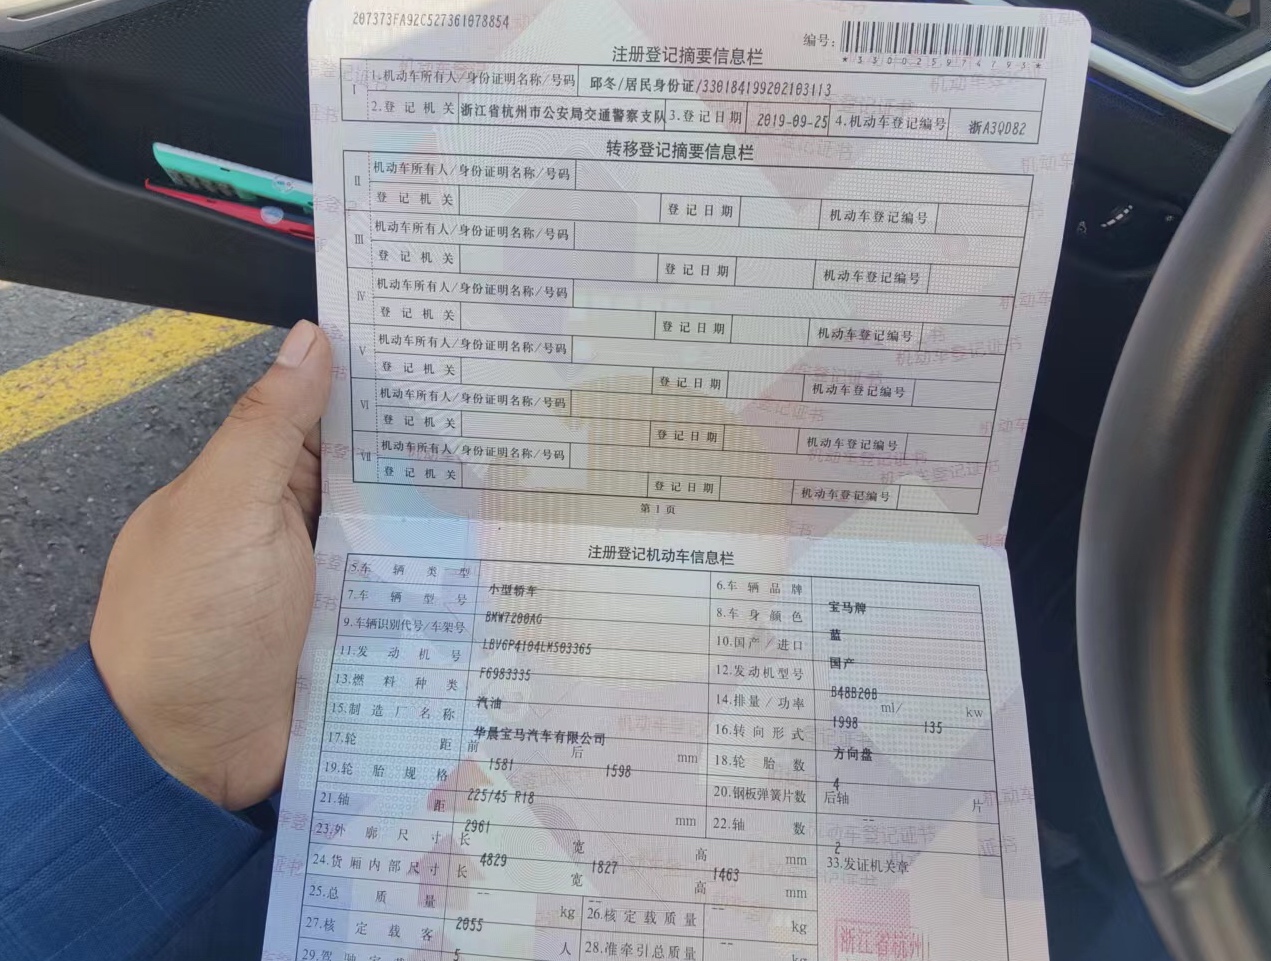 207373FA92C527361078854
编号:
*330025974795*
注册登记摘要信息栏
I 1.机动车所有人/身份证明名称/号码 邱冬/居民身份证/330184199202103113
2.登记机关 浙江省杭州市公安局交通警察支队 3.登记日期 2019-09-25 4.机动车登记编号 浙A3QD82
转移登记摘要信息栏
II 机动车所有人/身份证明名称/号码
登记机关 登记日期 机动车登记编号
III 机动车所有人/身份证明名称/号码
登记机关 登记日期 机动车登记编号
IV 机动车所有人/身份证明名称/号码
登记机关 登记日期 机动车登记编号
V 机动车所有人/身份证明名称/号码
登记机关 登记日期 机动车登记编号
VI 机动车所有人/身份证明名称/号码
登记机关 登记日期 机动车登记编号
VII 机动车所有人/身份证明名称/号码
登记机关 登记日期 机动车登记编号
第1页
注册登记机动车信息栏
5.车辆类型 小型轿车 6.车辆品牌 宝马牌
7.车辆型号 BMW7200AG 8.车身颜色 蓝
9.车辆识别代号/车架号 LBV6P4104LMS03365 10.国产/进口 国产
11.发动机号 F6983335 12.发动机型号 B48B20B
13.燃料种类 汽油 14.排量/功率 1998 ml/ 135 kw
15.制造厂名称 华晨宝马汽车有限公司 16.转向形式 方向盘
17.轮距 前 1581 后 1598 mm 18.轮胎数 4
19.轮胎规格 225/45 R18 20.钢板弹簧片数 后轴 -- 片
21.轴距 2961 mm 22.轴数 2
23.外廓尺寸 长 4829 宽 1827 高 1463 mm 33.发证机关章
24.货厢内部尺寸 长 -- 宽 -- 高 -- mm
25.总质量 2055 kg 26.核定载质量 -- kg
27.核定载客 5 人 28.准牵引总质量 kg
浙江省杭州